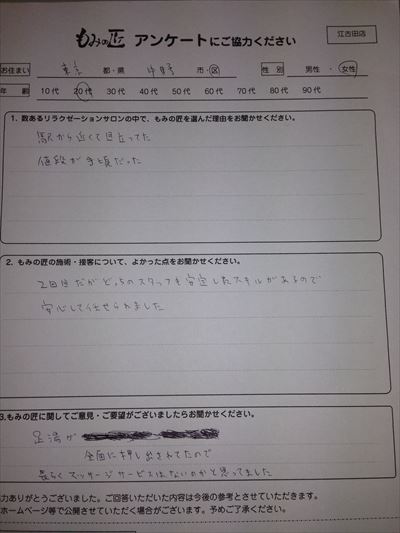 もみの匠 アンケートにご協力ください
江古田店
お住まい 東京 都・県 中野 市・区 性別 男性・女性
年齢 10代 20代 30代 40代 50代 60代 70代 80代 90代
1. 数あるリラクゼーションサロンの中で、もみの匠を選んだ理由をお聞かせください。
駅から近くて目立ってた
値段が手頃だった
2. もみの匠の施術・接客について、よかった点をお聞かせください。
2回目だがどっちのスタッフも安定したスキルがあるので
安心して任せられました
3.もみの匠に関してご意見・ご要望がございましたらお聞かせください。
足湯が
全面に押し出されてたので
長らくマッサージサービスはないのかと思ってました
力ありがとうございました。ご回答いただいた内容は今後の参考とさせていただきます。
ホームページ等で公開させていただく場合がございます。予めご了承ください。